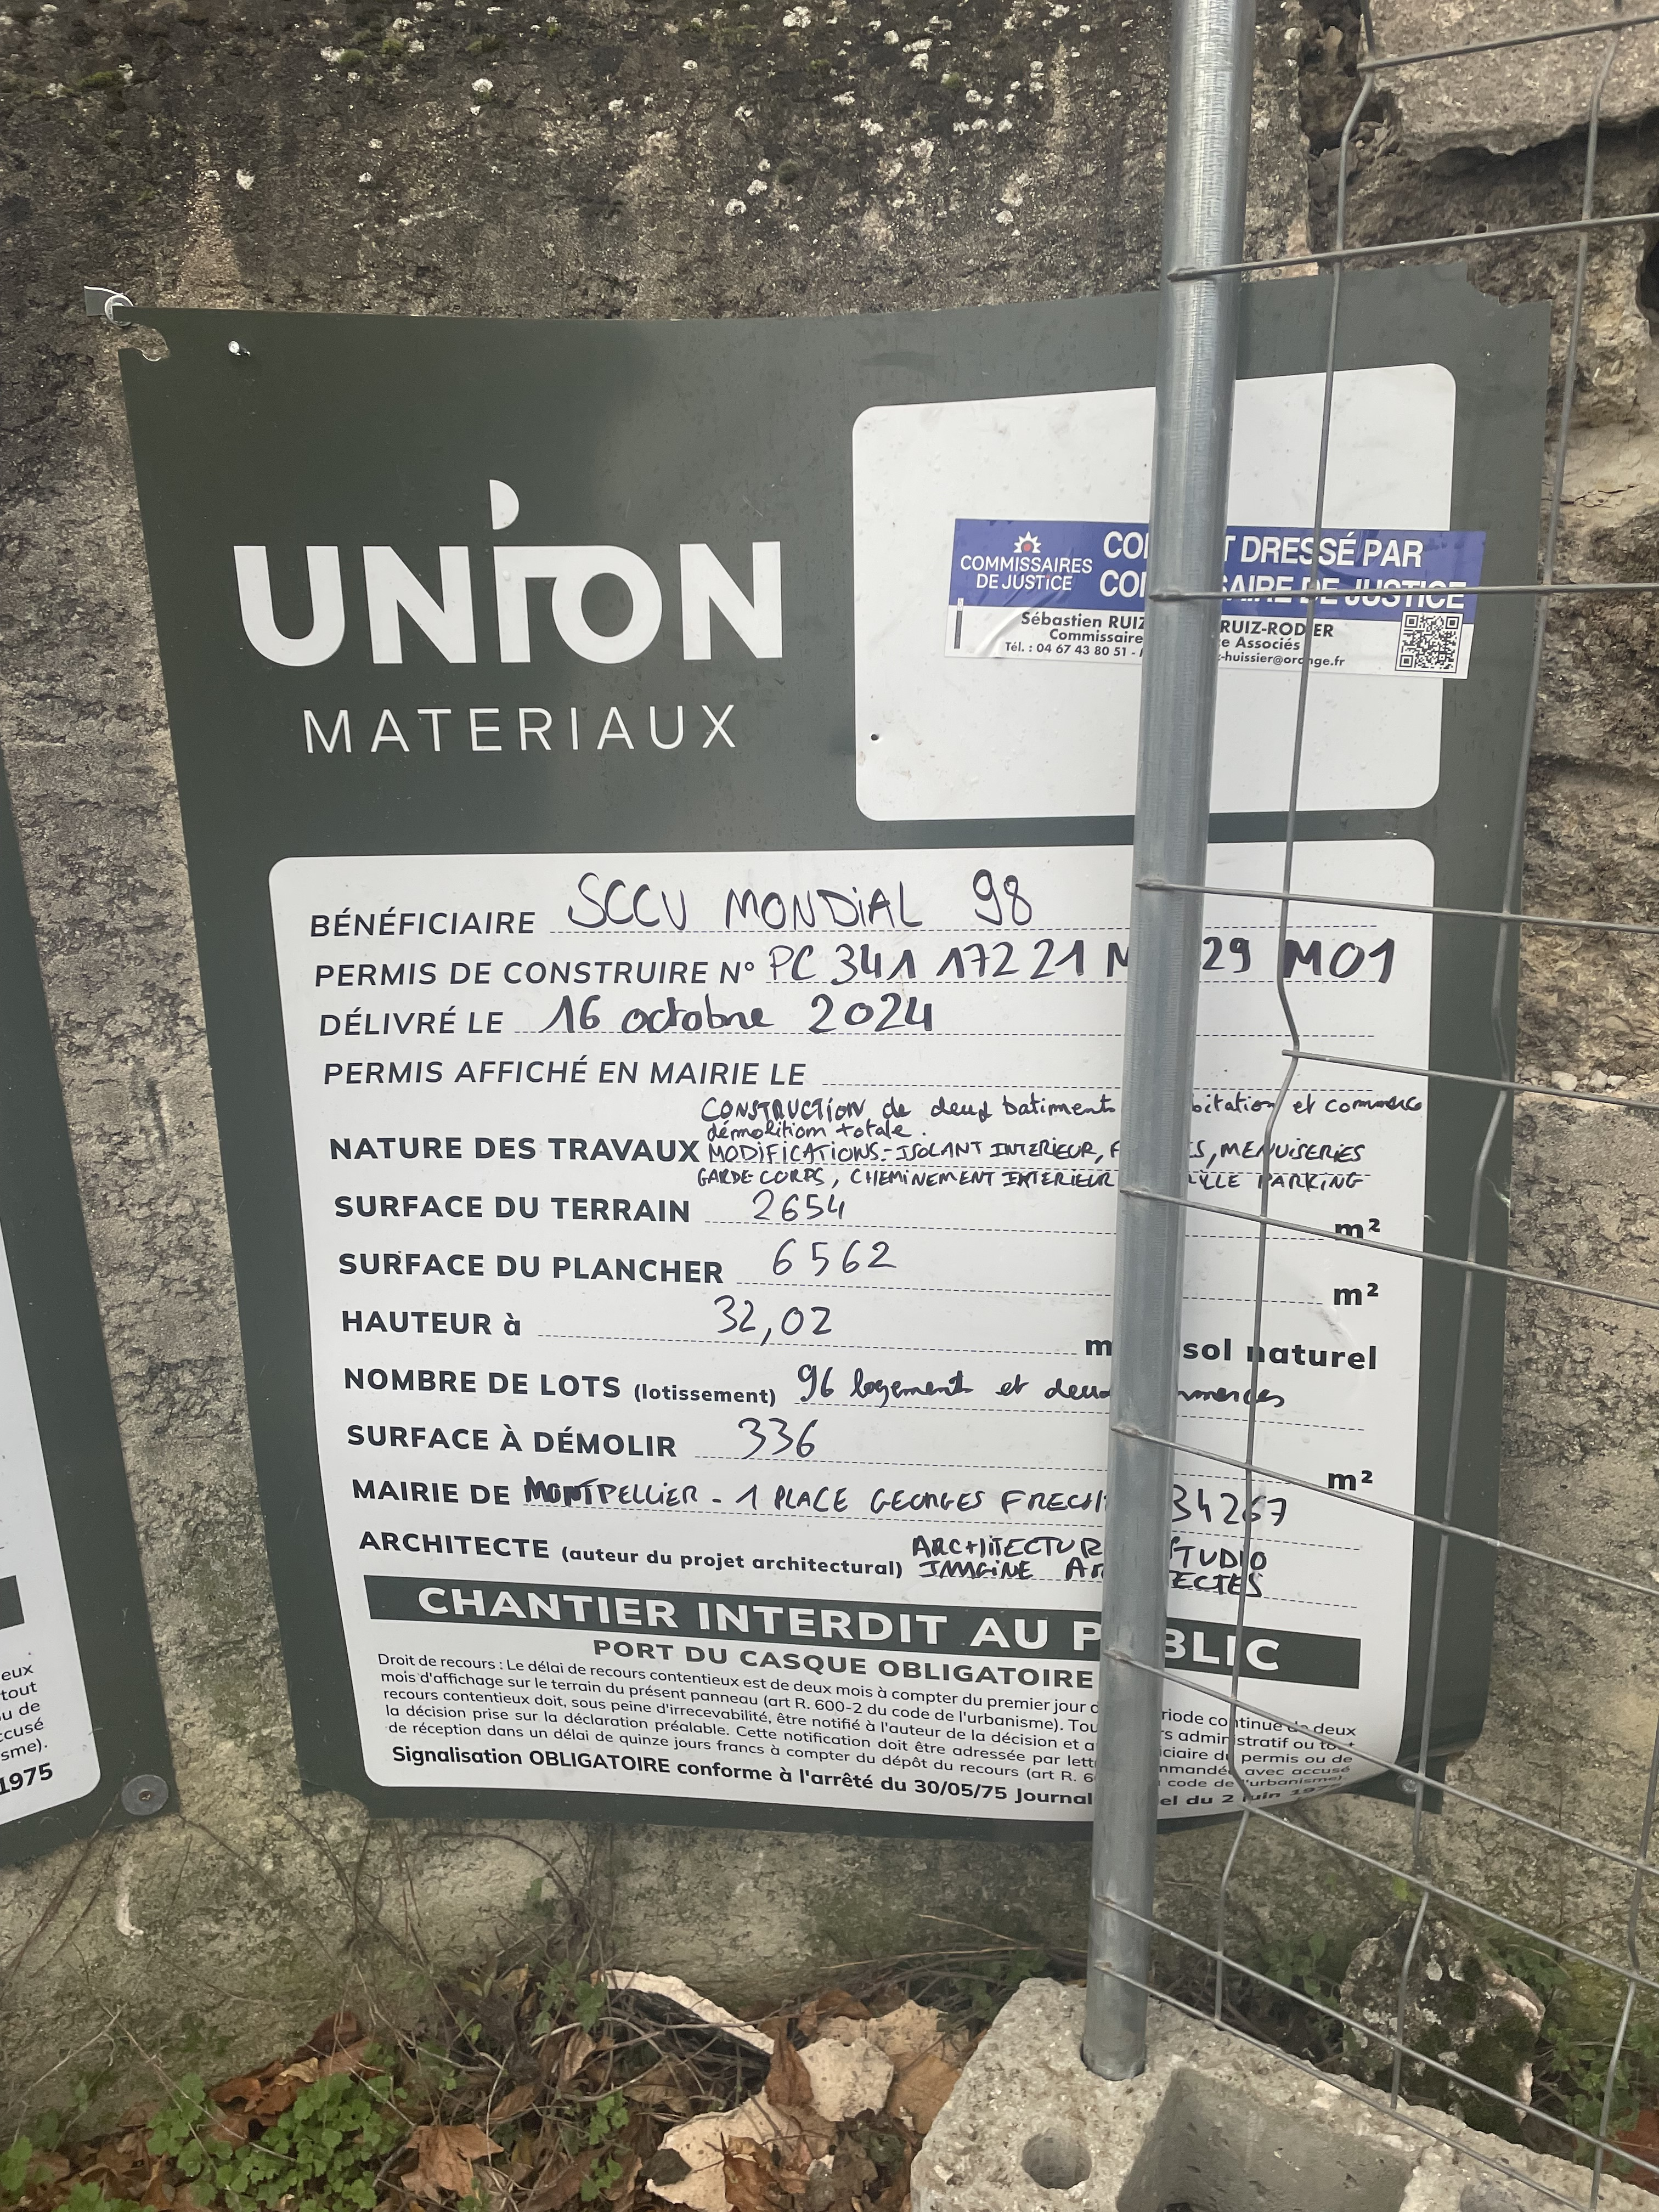 UNION
MATERIAUX
COMMISSAIRES
DE JUSTICE
DRESSÉ PAR
DE JUSTICE
Sébastien RUIZ RUIZ-RODIER
Commissaire Associés
Tél. : 04 67 43 80 51 - -huissier@orange.fr
BÉNÉFICIAIRE SCCU MONDIAL 98
PERMIS DE CONSTRUIRE N° PC 341 172 21 M 29 M01
DÉLIVRÉ LE 16 octobre 2024
PERMIS AFFICHÉ EN MAIRIE LE
CONSTRUCTION de deux batiments et commerce
démolition totale.
NATURE DES TRAVAUX MODIFICATIONS:-ISOLANT INTERIEUR, MENUISERIES
GARDE-CORPS, CHEMINEMENT INTERIEUR PARKING
SURFACE DU TERRAIN 2654 m²
SURFACE DU PLANCHER 6562 m²
HAUTEUR à 32,02 m sol naturel
NOMBRE DE LOTS (lotissement) 96 logements et deux
SURFACE À DÉMOLIR 336 m²
MAIRIE DE MONTPELLIER - 1 PLACE GEORGES 34267
ARCHITECTE (auteur du projet architectural) ARCHITECTURE STUDIO
IMAGINE
CHANTIER INTERDIT AU PUBLIC
PORT DU CASQUE OBLIGATOIRE
Droit de recours : Le délai de recours contentieux est de deux mois à compter du premier jour continue de deux
mois d'affichage sur le terrain du présent panneau (art R. 600-2 du code de l'urbanisme). administratif ou tout
recours contentieux doit, sous peine d'irrecevabilité, être notifié à l'auteur de la décision et du permis ou de
la décision prise sur la déclaration préalable. Cette notification doit être adressée par avec accusé
de réception dans un délai de quinze jours francs à compter du dépôt du recours (art R. code de l'urbanisme).
Signalisation OBLIGATOIRE conforme à l'arrêté du 30/05/75 Journal du 2 juin 1975
eux
tout
de
accusé
1975